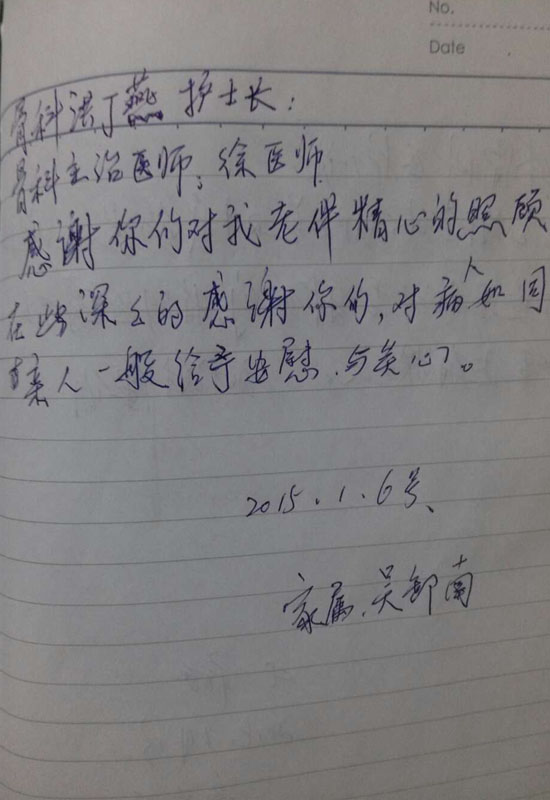 No.
Date
骨科洪丁燕护士长：
骨科主治医师；徐医师
感谢你们对我老伴精心的照顾
在此深之的感谢你们,对病人如同
亲人一般给予安慰.与关心。
2015.1.6号、
家属.吴卸南